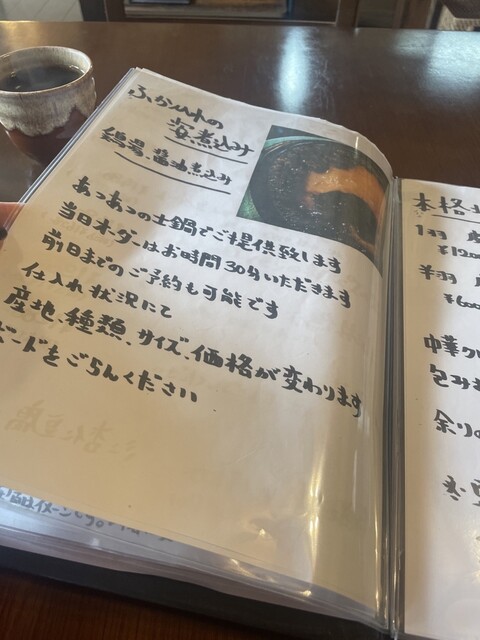 ふかひれの
姿煮込み
鶏湯、醤油煮込み
あつあつの土鍋でご提供致します
当日オーダーはお時間30分いただきます
前日までのご予約も可能です
仕入れ状況にて
産地、種類、サイズ、価格が変わります
ボードをごらんください
本格
1羽
半羽
中華ク
包み
余りの